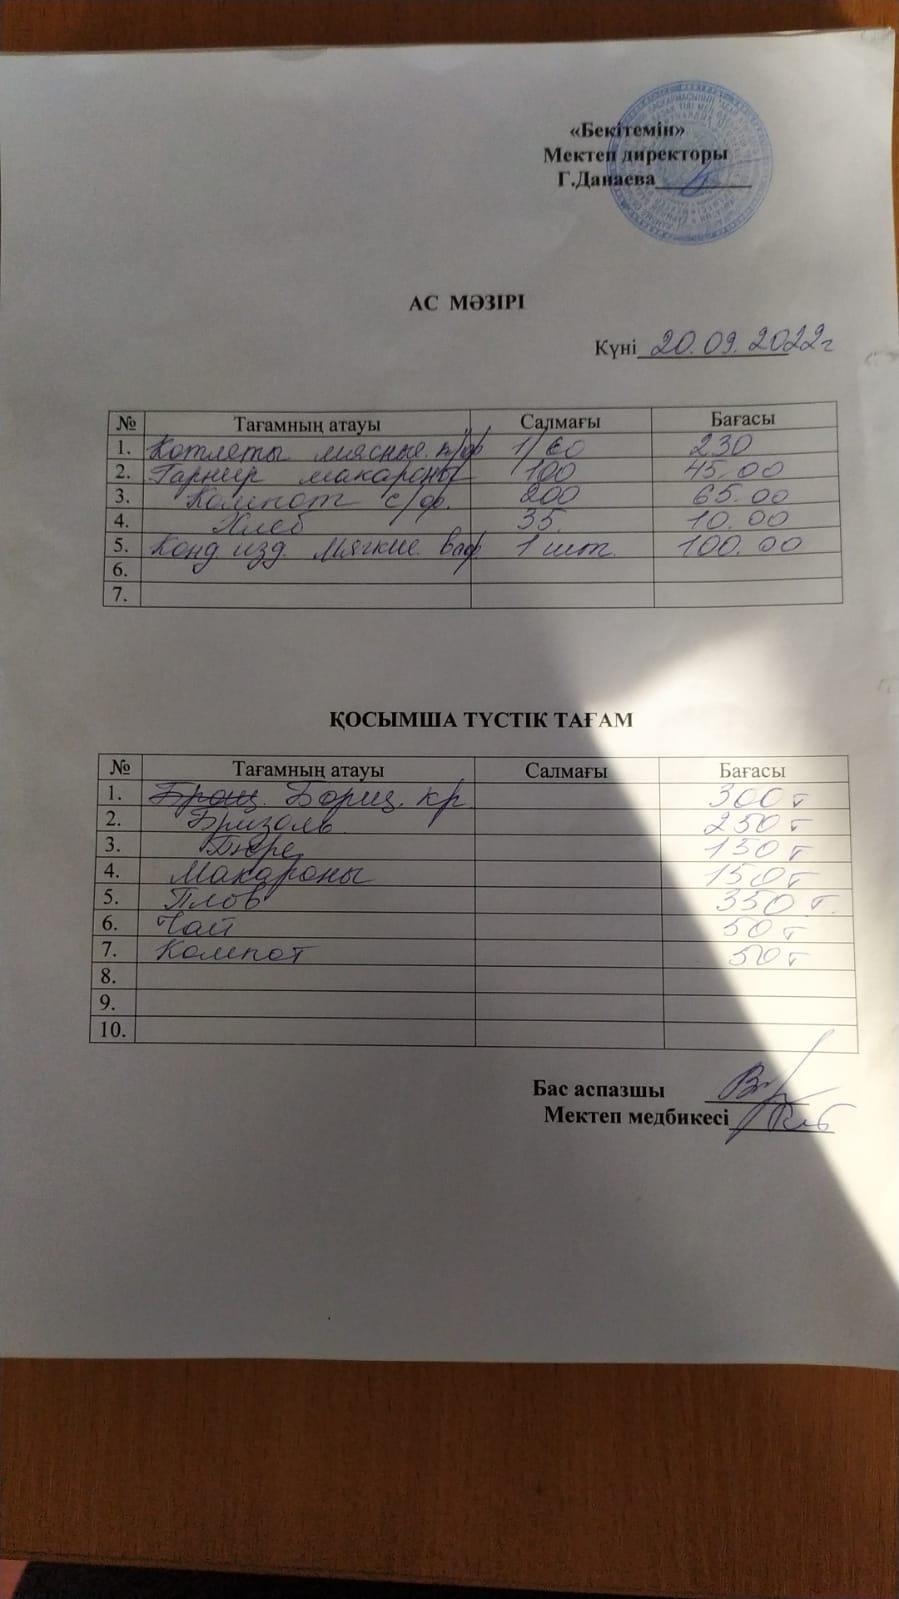 «Бекітемін»
Мектеп директоры
Г.Данаева
АС МӘЗІРІ
Күні 20.09.2022г
№ Тағамның атауы Салмағы Бағасы
1. Котлеты мясные п/ф 1/60 230
2. Гарнир макароны 100 45.00
3. Компот с/ф. 200 65.00
4. Хлеб 35. 10.00
5. Конд изд. Мягкие. ваф. 1 шт. 100.00
6.
7.
ҚОСЫМША ТҮСТІК ТАҒАМ
№ Тағамның атауы Салмағы Бағасы
1. Борщ. кр 300 т
2. Бризоль. 250 т
3. Пюре 150 т
4. Макароны 150 т
5. Плов 350 т.
6. Чай 50 т
7. Компот 50 т
8.
9.
10.
Бас аспазшы
Мектеп медбикесі